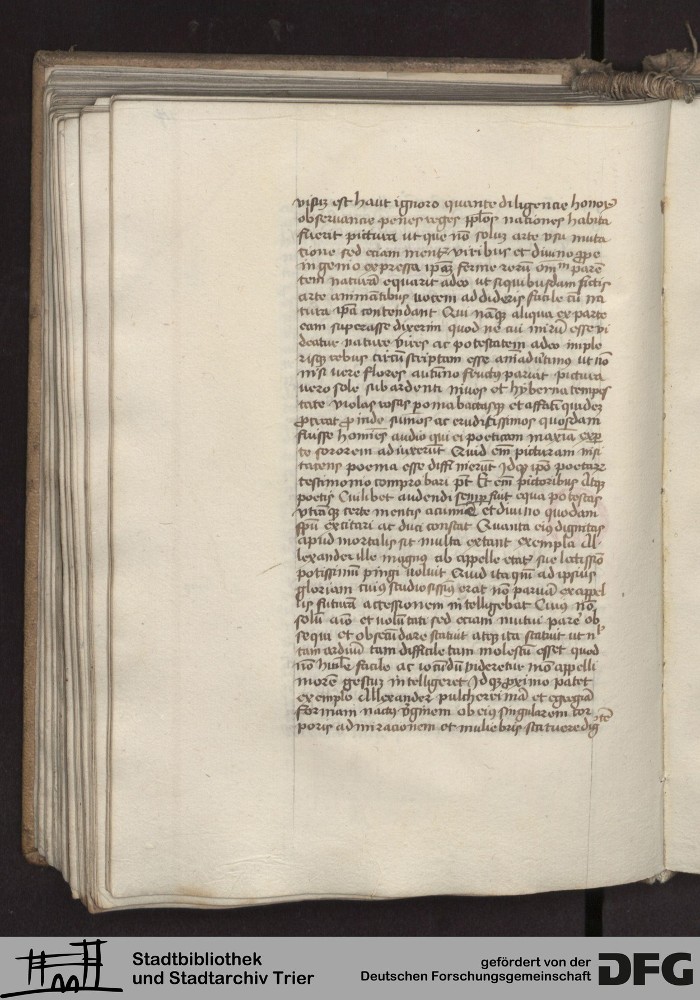 visus est haut ignoro quante diligencie honoris
observancie penes reges pplos nationes habita
fuerit pictura ut que nō solum arte usu muta
tione sed eciam mentis viribus et divino prope
ingenio expressa ipam ferme rerum omm paren
tem naturā equarit adeo ut si quibusdam fictis
arte animātibus vocem addideris facile cū na
tura ipā contendant Qui namque aliqua ex parte
eam superasse dixerim quod ne cui mirū esse vi
deatur nature vires ac potestatem adeo imple
risque rebus circūscriptam esse aīadvtimus ut nō
nisi vere flores autūno fructus pariat pictura
vero sole sub ardenti nives et hyberna tempes
tate violas rosas poma baccasque et affatī quidem
Proinde sumos ac eruditissimos quosdam
fuisse homīes audio qui ei poeticam
te sororem adiuxerūt Quid em picturam nisi
tacens poema esse diffinierūt Idque ipo poetarum
testimonio comprobari pt Et em pictoribus Atque
poetis Cuilibet audendi semper fuit equa potestas
utrūque certe mentis acumie et divino quodam
spū excitari ac duci constat Quanta eius dignitas
apud mortalis sit multa extant exempla Al
lexander ille magnus ab appelle etatis sue lectissīo
potissimū pingi voluit Quid ita quī ad ipsius
gloriam cuius studiosissimus erat nō parvā ex appel
lis futurā accessionem intelligebat Cuius nō
solū aīo et volūtati sed eciam nutui parere ob
sequi et obsecūdare statuit atque ita statuit ut nl
tam arduū tam difficile tam molestū esset quod
nō huīle facile ac iocūdū videretur mō appelli
morem gestum intelligeret Idque proximo patet
exemplo Allexander pulcherrimā et egregiā
formam nactus virginem ob eius singularem cor
poris admiracionem et muliebris stature digtē
Stadtbibliothek
und Stadtarchiv Trier
gefördert von der
Deutschen Forschungsgemeinschaft
DFG